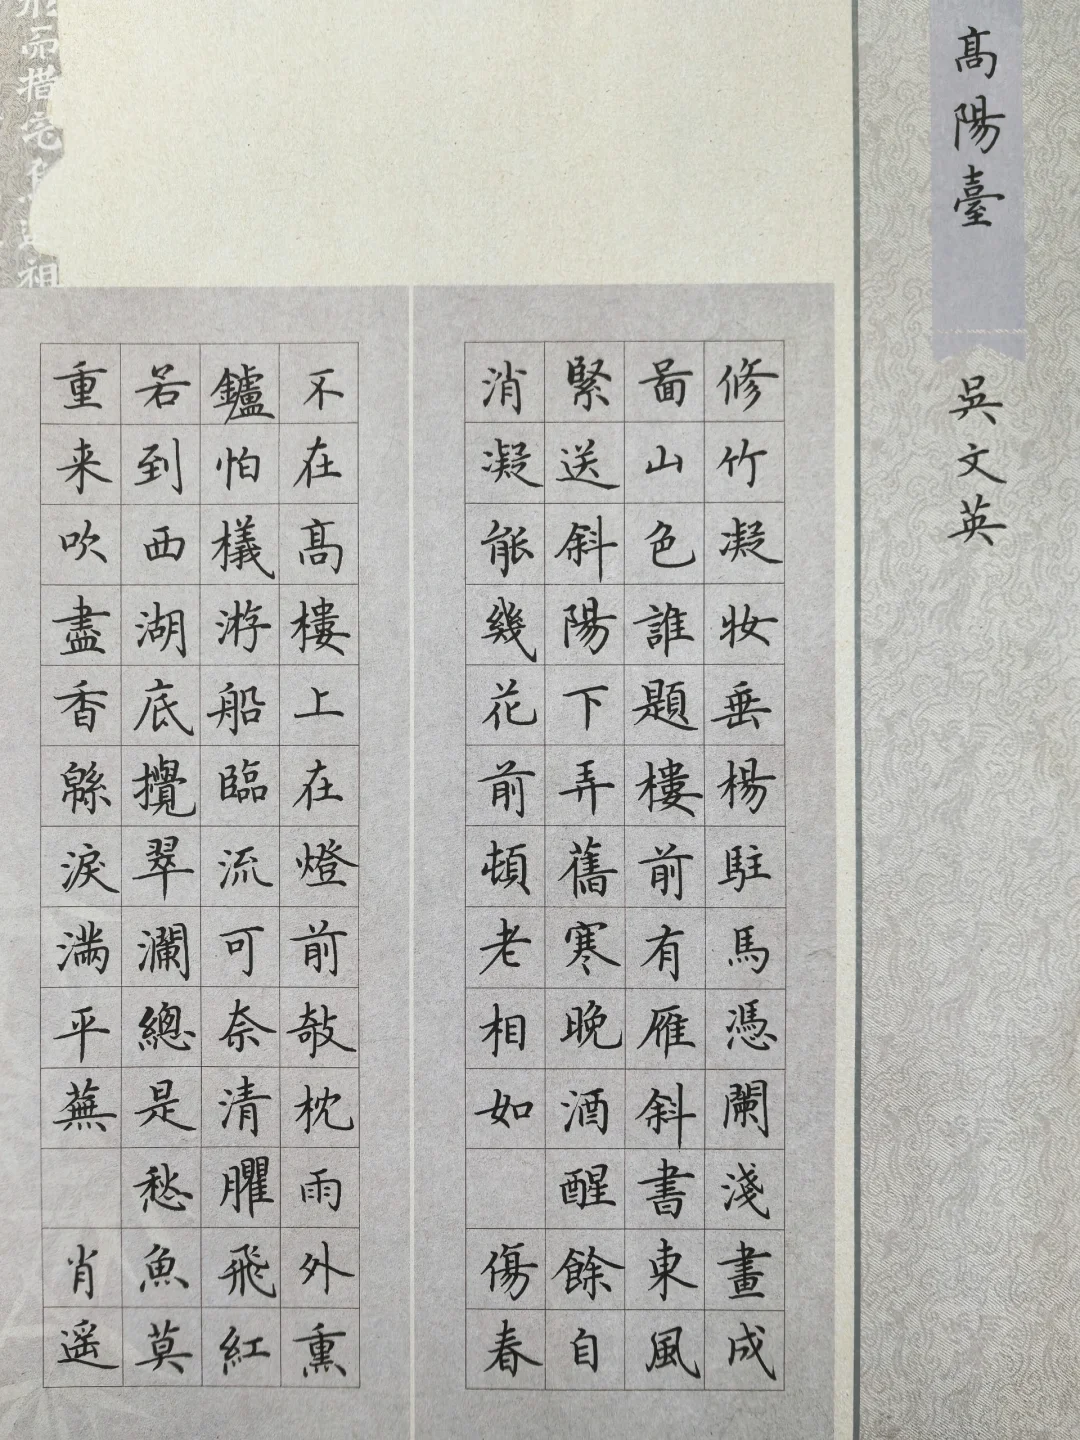 高陽臺
吳文英
修竹凝妝垂楊駐馬憑闌淺畫成
啚山色誰題樓前有雁斜書東風
緊送斜陽下弄舊寒晚酒醒餘自
消凝能幾花前頓老相如 傷春
不在高樓上在燈前敧枕雨外熏
鑪怕檥游船臨流可奈清臞飛紅
若到西湖底攪翠瀾總是愁魚莫
重来吹盡香緜淚满平蕪 肖遥